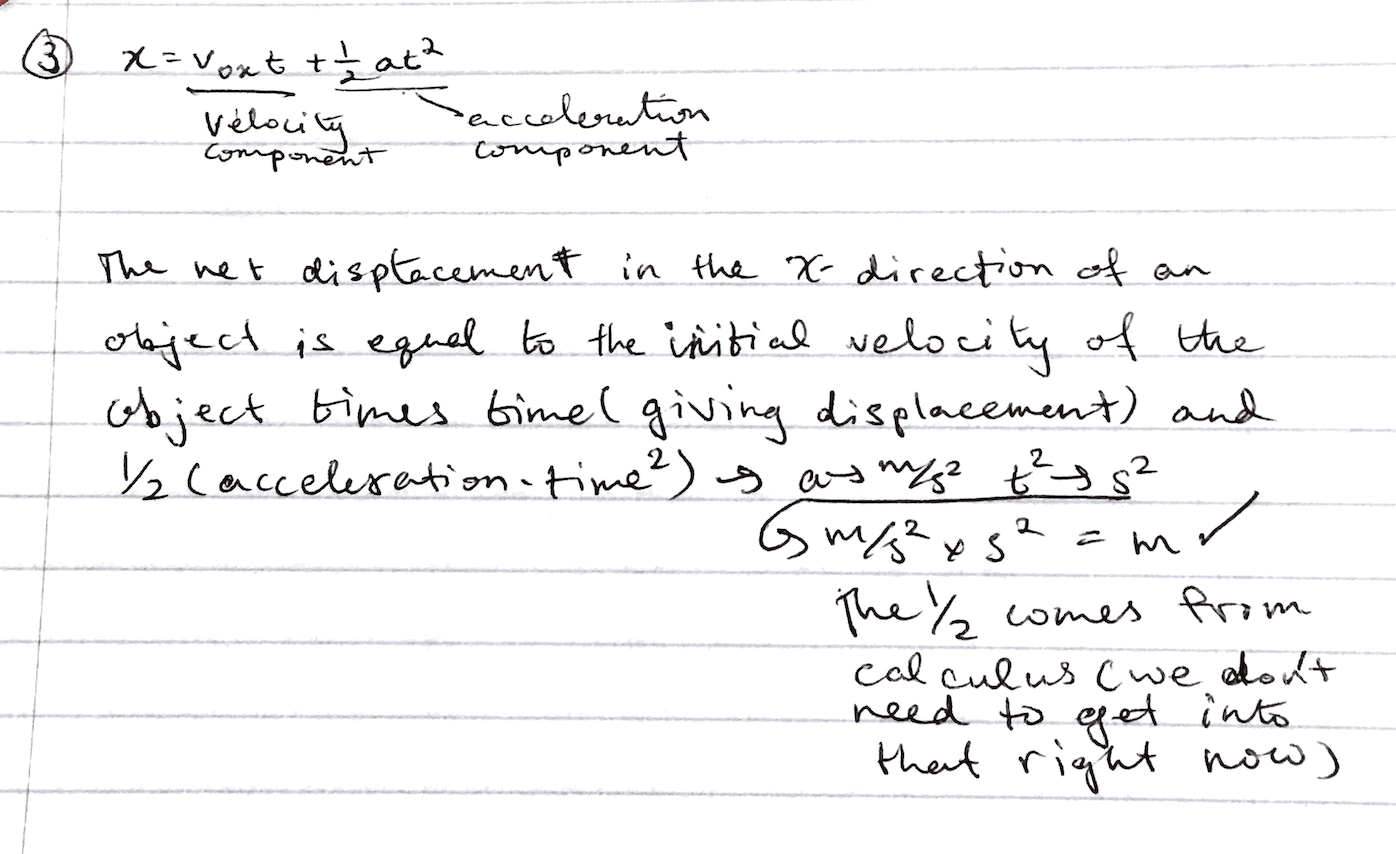 ③ x = v₀ₓt + ½ at²
velocity acceleration
component component
The net displacement in the x-direction of an
object is equal to the initial velocity of the
object times time (giving displacement) and
1/2 (acceleration · time²) → a → m/s² t² → s²
↳ m/s² × s² = m ✓
The 1/2 comes from
calculus (we don't
need to get into
that right now)